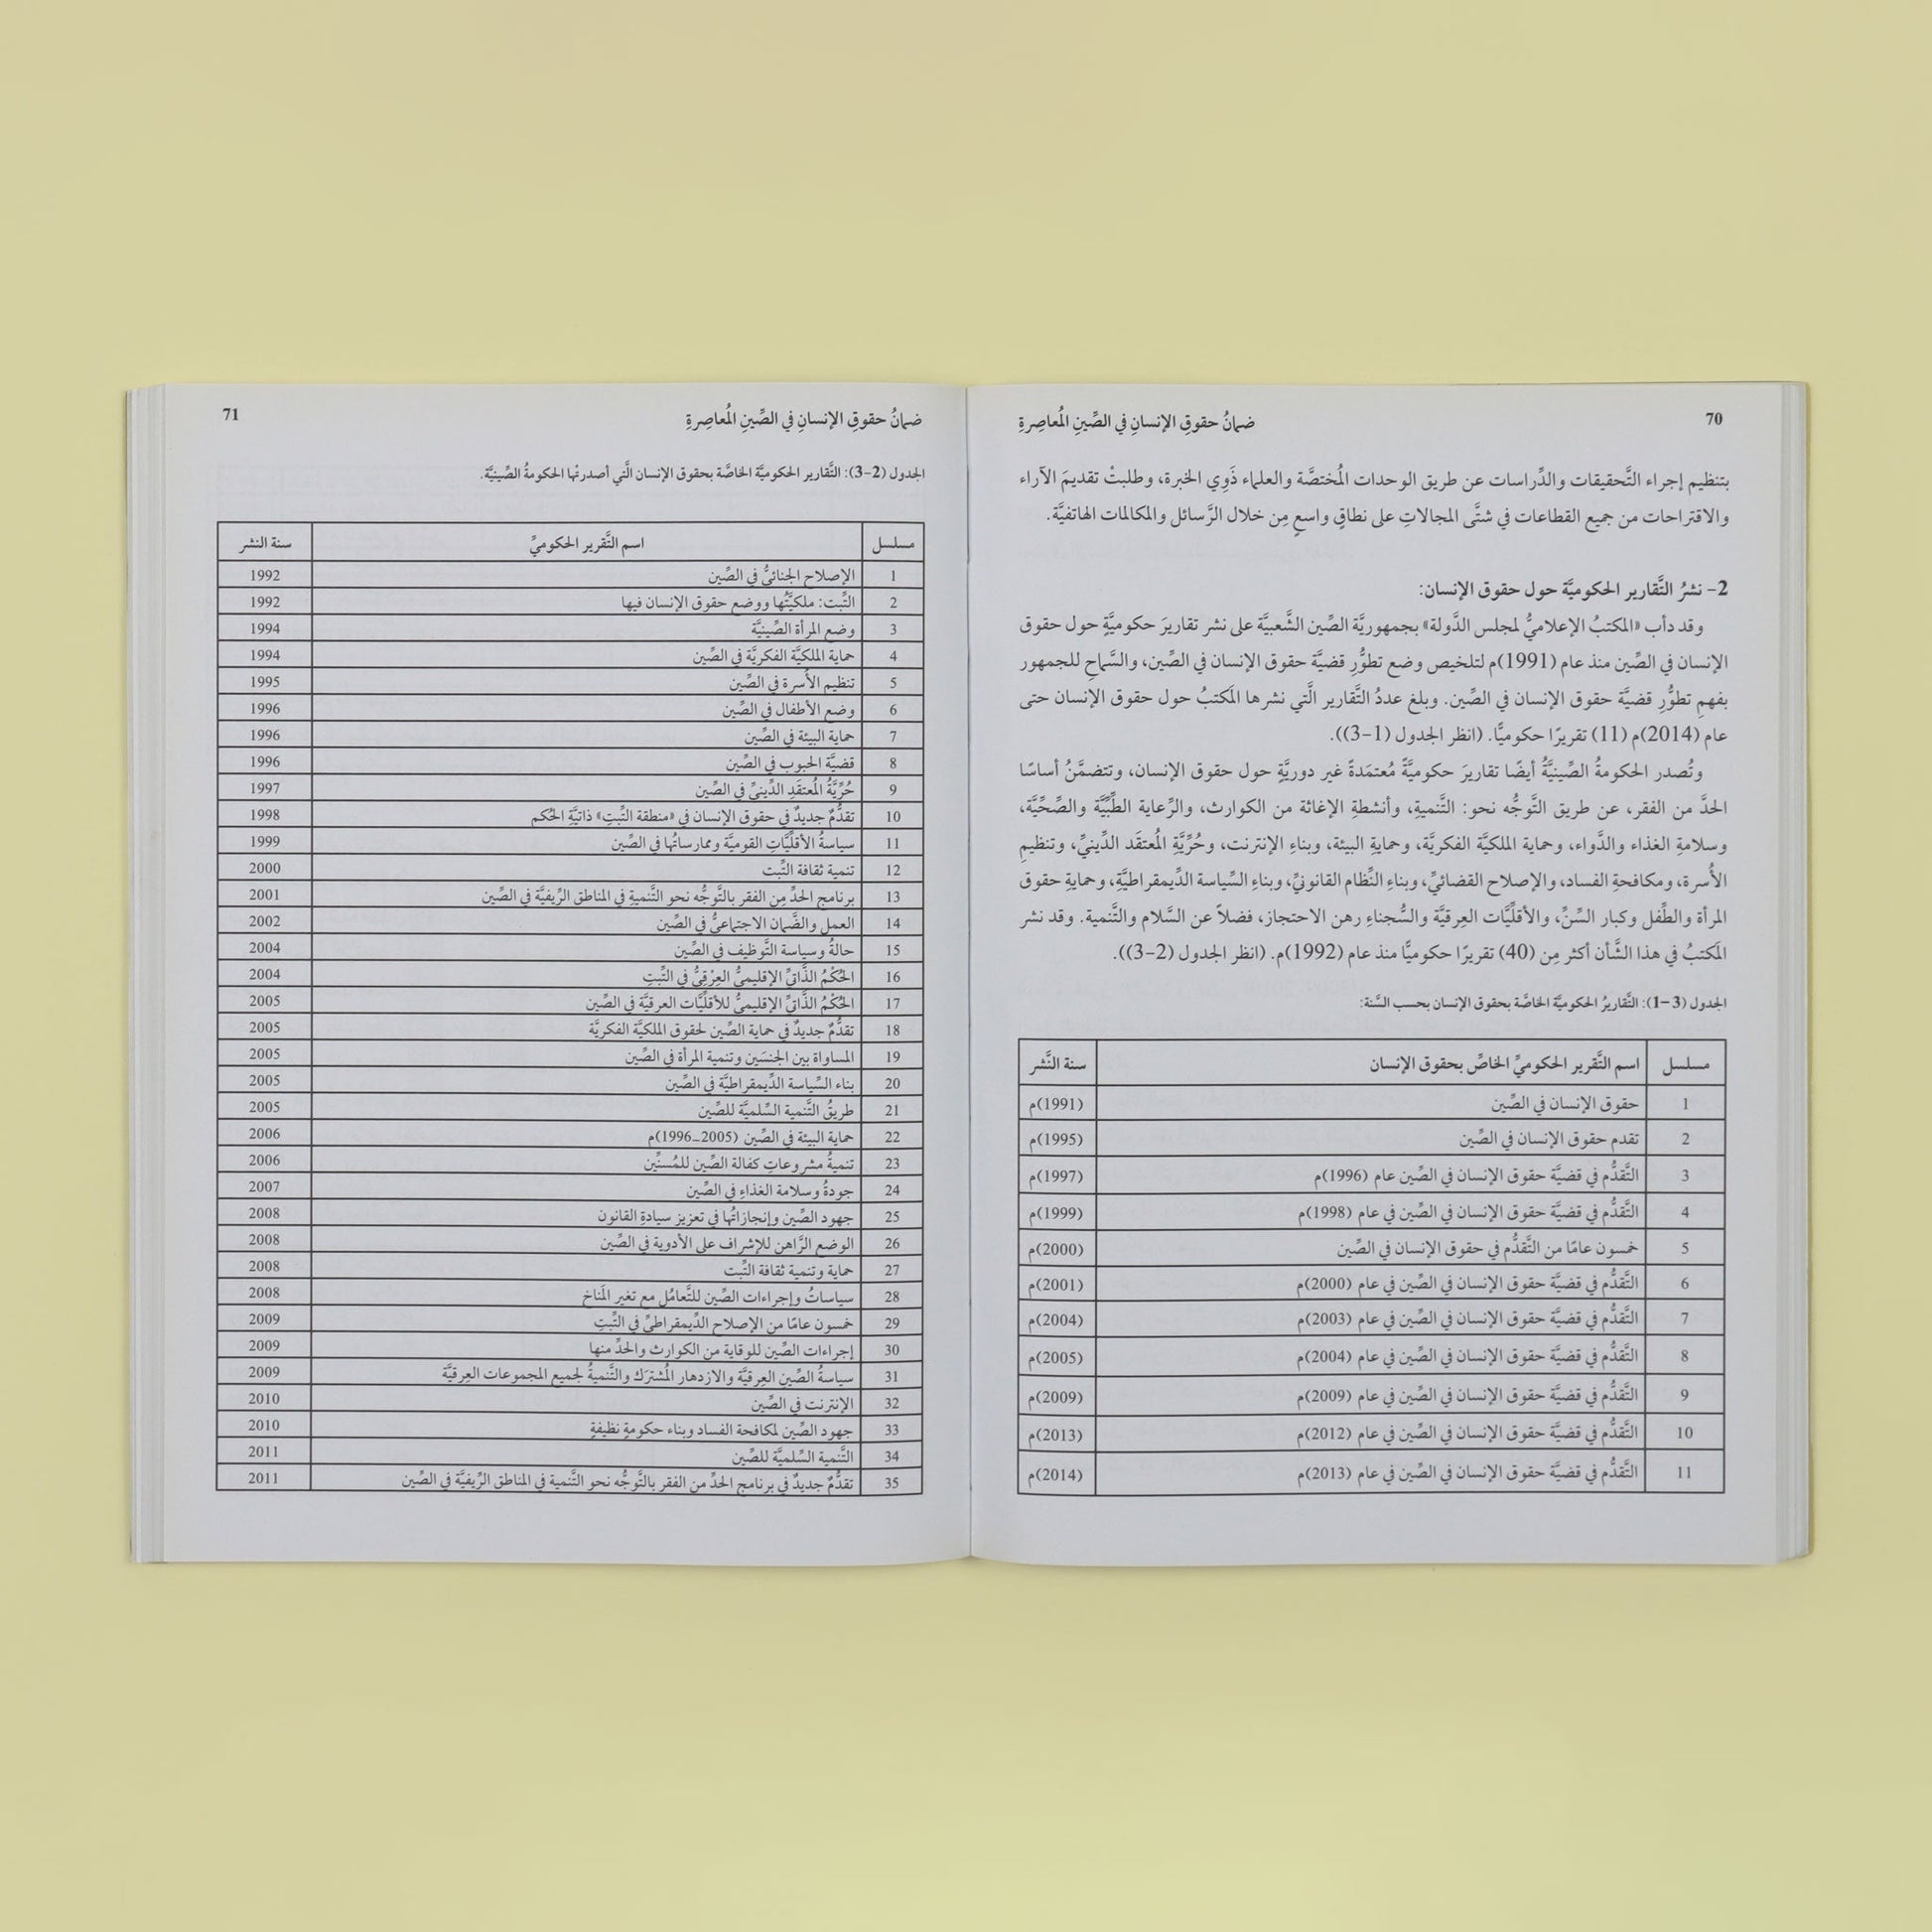 70
ضمانُ حقوقِ الإنسانِ في الصِّينِ المُعاصِرةِ
بتنظيم إجراء التَّحقيقات والدِّراسات عن طريق الوحدات المُختصَّة والعلماء ذَوِي الخبرة، وطلبتْ تقديمَ الآراء
والاقتراحات من جميع القطاعات في شتَّى المجالاتِ على نطاقٍ واسعٍ مِن خلال الرَّسائل والمكالمات الهاتفيَّة.
2- نشرُ التَّقارير الحكوميَّة حول حقوق الإنسان:
وقد دأب «المكتبُ الإعلاميُّ لمجلس الدَّولة» بجمهوريَّة الصِّين الشَّعبيَّة على نشر تقاريرَ حكوميَّةٍ حول حقوق
الإنسان في الصِّين منذ عام (1991)م لتلخيص وضع تطوُّرِ قضيَّة حقوق الإنسان في الصِّين، والسَّماحِ للجمهور
بفهمِ تطوُّرِ قضيَّة حقوق الإنسان في الصِّين. وبلغ عددُ التَّقارير الَّتي نشرها المَكتبُ حول حقوق الإنسان حتى
عام (2014)م (11) تقريرًا حكوميًّا. (انظر الجدول (1-3)).
وتُصدر الحكومةُ الصِّينيَّةُ أيضًا تقاريرَ حكوميَّةً مُعتمَدةً غير دوريَّةٍ حول حقوق الإنسان، وتتضمَّنُ أساسًا
الحدَّ من الفقر، عن طريق التَّوجُّه نحو: التَّنميةِ، وأنشطةِ الإغاثة من الكوارث، والرِّعاية الطِّبِّيَّة والصِّحِّيَّة،
وسلامةِ الغذاء والدَّواء، وحماية الملكيَّة الفكريَّة، وحمايةِ البيئة، وبناءِ الإنترنت، وحُرِّيَّةِ المُعتقَد الدِّينيِّ، وتنظيمِ
الأُسرة، ومكافحةِ الفساد، والإصلاح القضائيِّ، وبناءِ النِّظام القانونيِّ، وبناءِ السِّياسة الدِّيمقراطيَّةِ، وحمايةِ حقوق
المرأة والطِّفل وكبار السِّنِّ، والأقليَّات العِرقيَّة والسُّجناءِ رهن الاحتجاز، فضلاً عن السَّلام والتَّنمية. وقد نشر
المَكتبُ في هذا الشَّأن أكثر مِن (40) تقريرًا حكوميًّا منذ عام (1992)م. (انظر الجدول (2-3)).
الجدول (3-1): التَّقاريرُ الحكوميَّة الخاصَّة بحقوق الإنسان بحسب السَّنة:
مسلسل اسم التَّقرير الحكوميِّ الخاصِّ بحقوق الإنسان سنة النَّشر
1 حقوق الإنسان في الصِّين (1991)م
2 تقدم حقوق الإنسان في الصِّين (1995)م
3 التَّقدُّم في قضيَّة حقوق الإنسان في الصِّين عام (1996)م (1997)م
4 التَّقدُّم في قضيَّة حقوق الإنسان في الصِّين في عام (1998)م (1999)م
5 خمسون عامًا من التَّقدُّم في حقوق الإنسان في الصِّين (2000)م
6 التَّقدُّم في قضيَّة حقوق الإنسان في الصِّين في عام (2000)م (2001)م
7 التَّقدُّم في قضيَّة حقوق الإنسان في الصِّين في عام (2003)م (2004)م
8 التَّقدُّم في قضيَّة حقوق الإنسان في الصِّين في عام (2004)م (2005)م
9 التَّقدُّم في قضيَّة حقوق الإنسان في الصِّين في عام (2009)م (2009)م
10 التَّقدُّم في قضيَّة حقوق الإنسان في الصِّين في عام (2012)م (2013)م
11 التَّقدُّم في قضيَّة حقوق الإنسان في الصِّين في عام (2013)م (2014)م
ضمانُ حقوقِ الإنسانِ في الصِّينِ المُعاصِرةِ
71
الجدول (2-3): التَّقارير الحكوميَّة الخاصَّة بحقوق الإنسان الَّتي أصدرتْها الحكومةُ الصِّينيَّة.
مسلسل اسم التَّقرير الحكوميِّ سنة النشر
1 الإصلاح الجنائيُّ في الصِّين 1992
2 التِّبت: ملكيَّتُها ووضع حقوق الإنسان فيها 1992
3 وضع المرأة الصِّينيَّة 1994
4 حماية الملكيَّة الفكريَّة في الصِّين 1994
5 تنظيم الأُسرة في الصِّين 1995
6 وضع الأطفال في الصِّين 1996
7 حماية البيئة في الصِّين 1996
8 قضيَّة الحبوب في الصِّين 1996
9 حُرِّيَّةُ المُعتقَدِ الدِّينيِّ في الصِّين 1997
10 تقدُّمٌ جديدٌ في حقوق الإنسان في «منطقة التِّبتِ» ذاتيَّةِ الحُكم 1998
11 سياسةُ الأقليَّاتِ القوميَّة وممارساتُها في الصِّين 1999
12 تنمية ثقافة التِّبت 2000
13 برنامج الحدِّ مِن الفقر بالتَّوجُّه نحو التَّنميةِ في المناطق الرِّيفيَّة في الصِّين 2001
14 العمل والضَّمان الاجتماعيُّ في الصِّين 2002
15 حالةُ وسياسة التَّوظيف في الصِّين 2004
16 الحُكْمُ الذَّاتيِّ الإقليميُّ العِرْقيُّ في التِّبتِ 2004
17 الحُكْمُ الذَّاتيِّ الإقليميُّ للأقليَّات العرقيَّة في الصِّين 2005
18 تقدُّمٌ جديدٌ في حماية الصِّين لحقوق الملكيَّة الفكريَّة 2005
19 المساواة بين الجنسَين وتنمية المرأة في الصِّين 2005
20 بناء السِّياسة الدِّيمقراطيَّة في الصِّين 2005
21 طريقُ التَّنمية السِّلميَّة للصِّين 2005
22 حماية البيئة في الصِّين (2005_1996)م 2006
23 تنميةُ مشروعاتِ كفالة الصِّين للمُسنِّين 2006
24 جودةُ وسلامة الغذاءِ في الصِّين 2007
25 جهود الصِّين وإنجازاتُها في تعزيز سيادةِ القانون 2008
26 الوضع الرَّاهن للإشراف على الأدوية في الصِّين 2008
27 حماية وتنمية ثقافة التِّبت 2008
28 سياساتُ وإجراءات الصِّين للتَّعامُل مع تغير المَناخ 2008
29 خمسون عامًا من الإصلاح الدِّيمقراطيِّ في التِّبتِ 2009
30 إجراءات الصِّين للوقاية من الكوارث والحدِّ منها 2009
31 سياسةُ الصِّين العِرقيَّة والازدهار المُشترَك والتَّنميةُ لجميع المجموعات العِرقيَّة 2009
32 الإنترنت في الصِّين 2010
33 جهود الصِّين لمكافحة الفساد وبناء حكومةٍ نظيفةٍ 2010
34 التَّنمية السِّلميَّة للصِّين 2011
35 تقدُّمٌ جديدٌ في برنامج الحدِّ من الفقر بالتَّوجُّه نحو التَّنمية في المناطق الرِّيفيَّة في الصِّين 2011